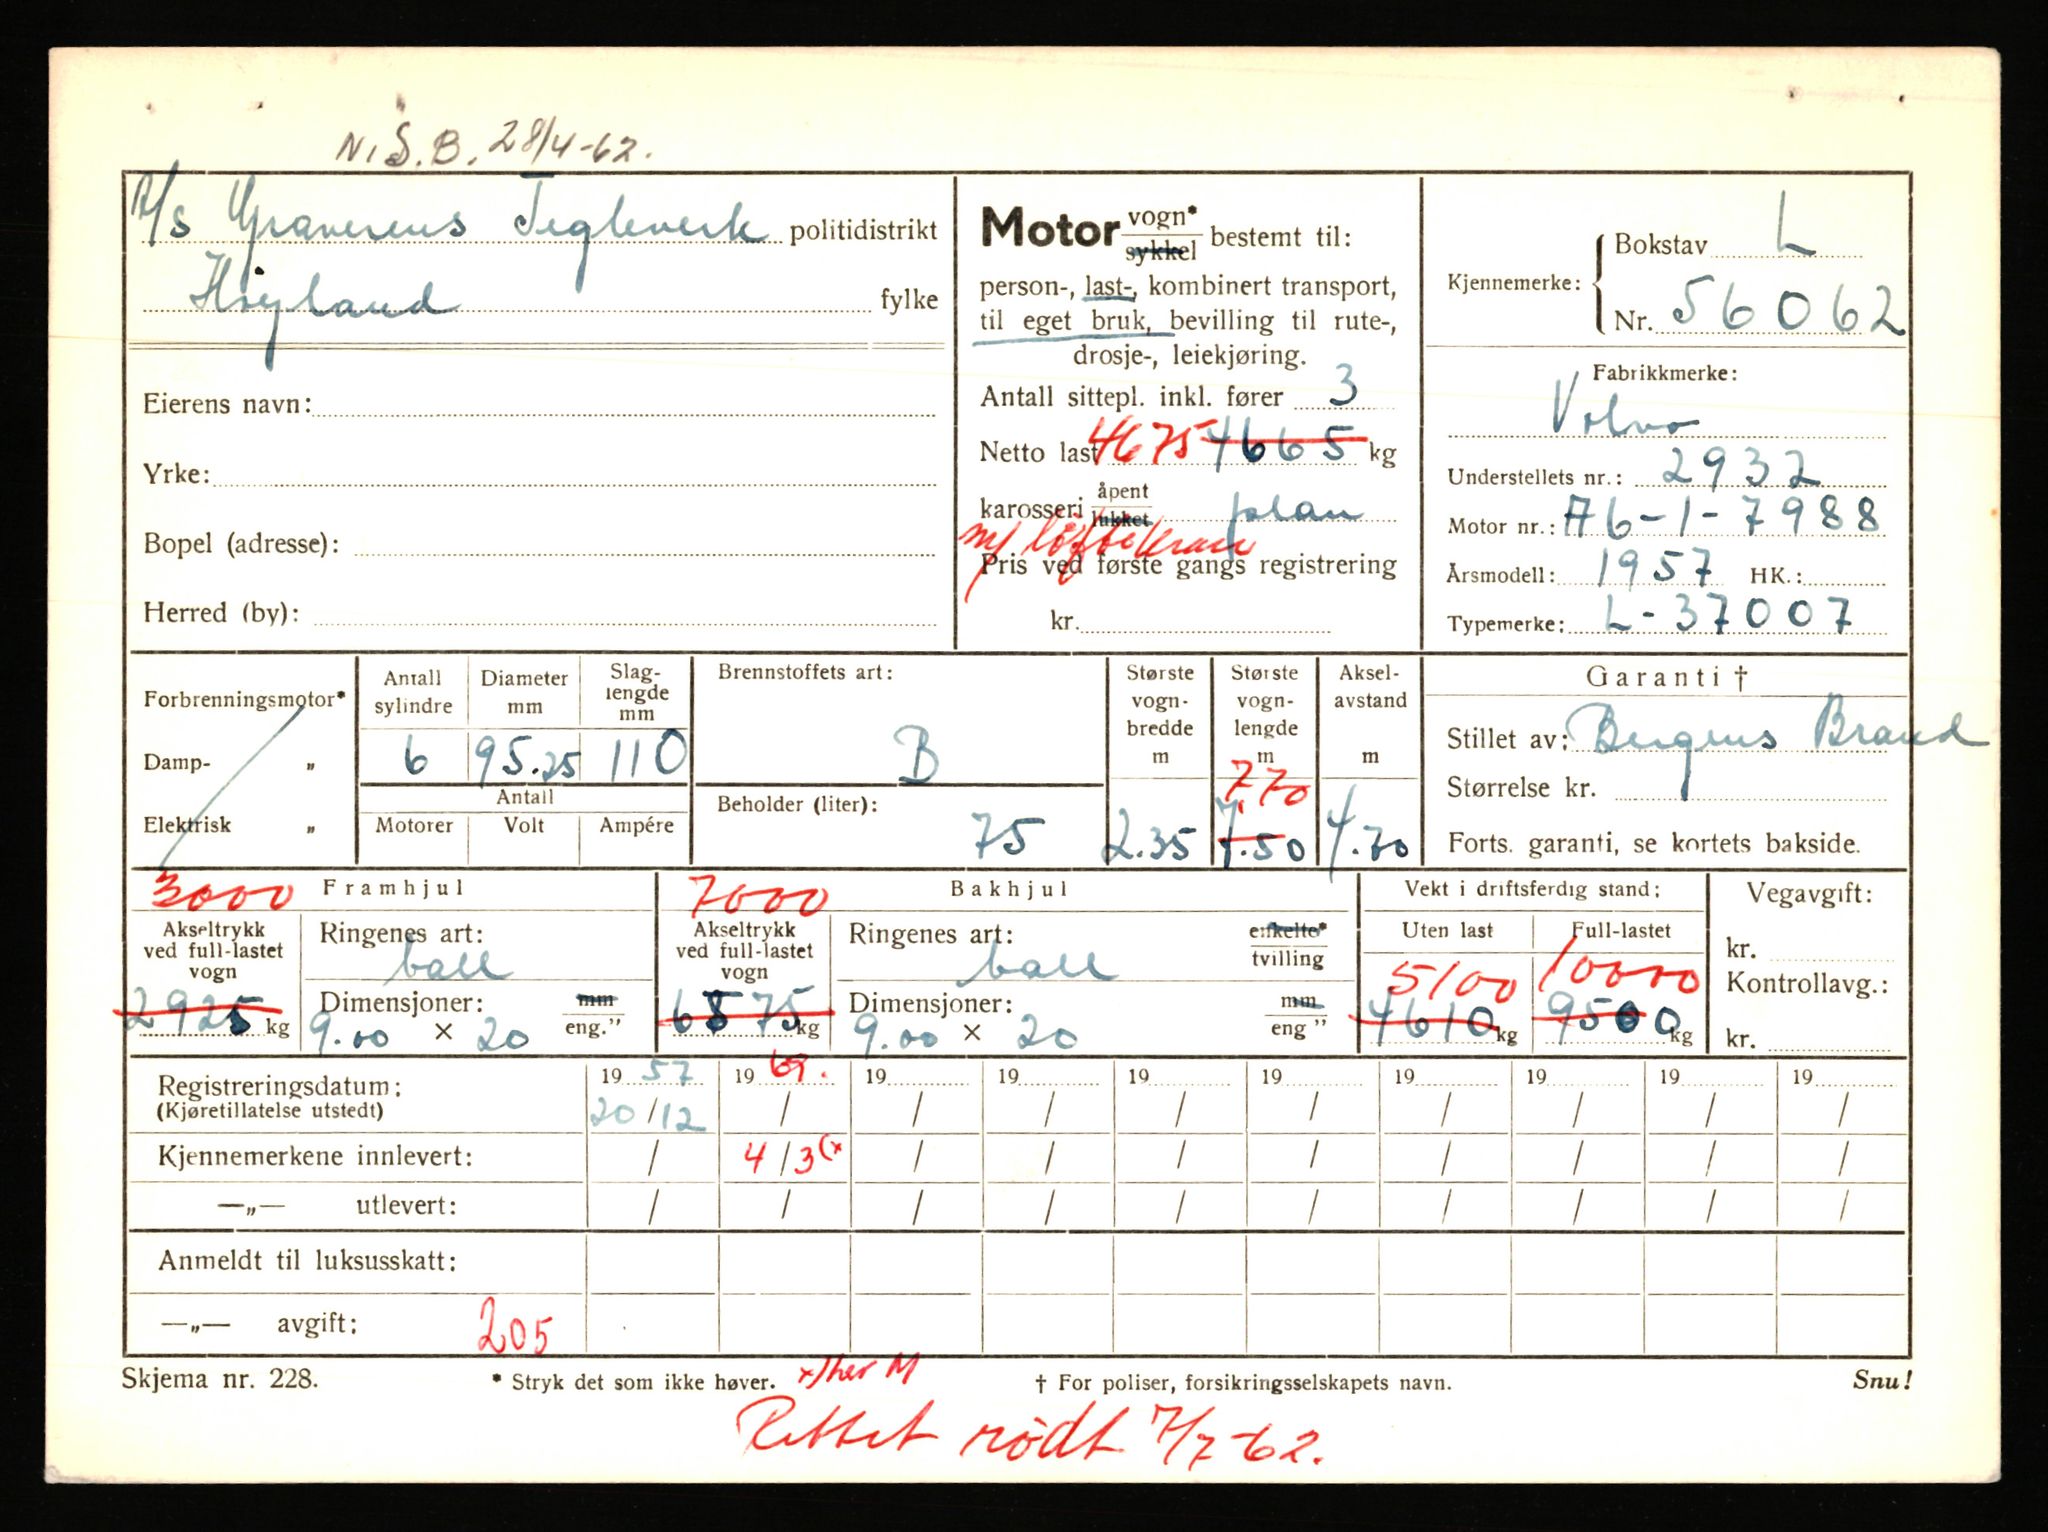 N.S.B. 28/4-62.
A/s Graverens Teglverk politidistrikt
Høyland fylke
Eierens navn:
Yrke:
Bopel (adresse):
Herred (by):
Motor vogn* sykkel bestemt til:
person-, last-, kombinert transport,
til eget bruk, bevilling til rute-,
drosje-, leiekjøring.
Antall sittepl. inkl. fører 3
Netto last 4675 4665 kg
karosseri åpent lukket plan
m/
Pris ved første gangs registrering
kr.
Kjennemerke: Bokstav L
Nr. 56062
Fabrikkmerke:
Volvo
Understellets nr.: 2937
Motor nr.: A6-1-7988
Årsmodell: 1957 HK.:
Typemerke: L-37007
Forbrenningsmotor*
Damp- „
Elektrisk „
Antall sylindre
Diameter mm
Slaglengde mm
6 95.25 110
Antall
Motorer Volt Ampére
Brennstoffets art:
B
Beholder (liter):
75
Største vognbredde m
2.35
Største vognlengde m
7.70
7.50
Akselavstand m
4.70
Garanti †
Stillet av: Bergens Brand
Størrelse kr.
Forts. garanti, se kortets bakside.
3000 Framhjul
Akseltrykk ved full-lastet vogn
2925 kg
Ringenes art:
ball
Dimensjoner: mm eng."
9.00 × 20
7000 Bakhjul
Akseltrykk ved full-lastet vogn
6575 kg
Ringenes art: enkelte* tvilling
ball
Dimensjoner: mm eng "
9.00 × 20
Vekt i driftsferdig stand:
Uten last Full-lastet
5100 10000
4610 kg 9500 kg
Vegavgift:
kr.
Kontrollavg.:
kr.
Registreringsdatum: 19 57 19 69. 19 19 19 19 19 19 19 19
(Kjøretillatelse utstedt) 20/12 / / / / / / / / /
Kjennemerkene innlevert: / 4/3(x / / / / / / / /
—„— utlevert: / / / / / / / / / /
Anmeldt til luksusskatt:
—„— avgift: 205
Skjema nr. 228. * Stryk det som ikke høver. x) her M † For poliser, forsikringsselskapets navn. Snu!
Rettet rødt 7/7-62.